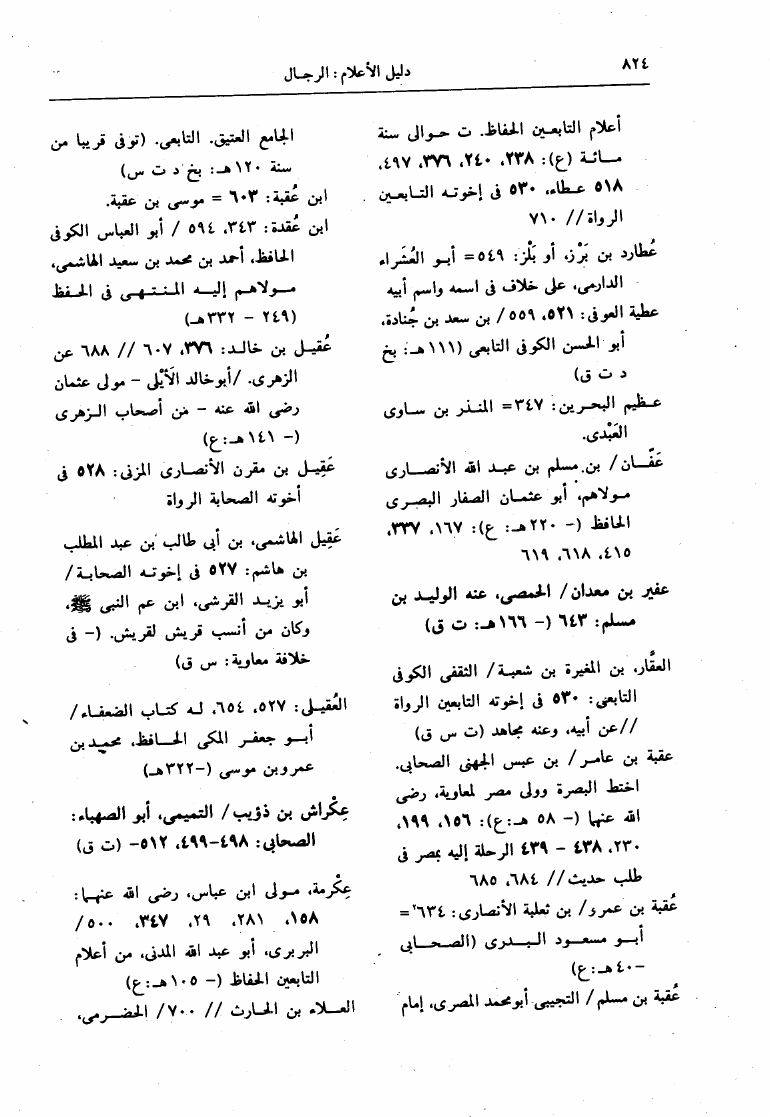 ٨٢٤
دليل الأعلام : الرجـال
أعلام التابعـين الحفاظ. ت حـوالى سنة
مـــائـة (ع): ٢٣٨، ٢٤٠، ٣٧٦، ٤٩٧،
٥١٨ عـطاء، ٥٣٠ فى إخوتـه التـابعـين
الرواة // ٧١٠
عُطارد بن بَرْز، أو بَلْز: ٥٤٩= أبـو العُشَراء
الدارمى، على خلاف فى اسمه واسم أبيه
عطية العوفى: ٥٢١، ٥٥٩ / بن سعد بن جُنادة،
أبو الحسن الكوفى التابعى (١١١هـ: بخ
د ت ق)
عـظيم البحـرين: ٣٤٧= المنـذر بن سـاوى
العَبْدى.
عَفَّـان / بن مسلم بن عبـد الله الأنصـارى
مـولاهم، أبو عثمـان الصفار البصـرى
الحافظ (- ٢٢٠هـ: ع): ١٦٧، ٣٣٧،
٤١٥، ٦١٨، ٦١٩
عفير بن معدان/ الحمصى، عنه الوليـد بن
مسلم: ٦٤٣ (- ١٦٦هـ: ت ق)
العقَّار، بن المغيرة بن شعبـة/ الثقفى الكوفى
التابعى: ٥٣٠ فى إخوته التابعين الرواة
//عن أبيه، وعنه مجاهد (ت س ق)
عقبة بن عامـر/ بن عبس الجهنى الصحابى.
اختط البصرة وولى مصر لمعاوية، رضى
الله عنهما (- ٥٨ هـ:ع): ١٥٦، ١٩٩،
٢٣٠، ٤٣٨ - ٤٣٩ الرحلة إليه بمصر فى
طلب حديث// ٦٨٤، ٦٨٥
عُقبة بن عمرو/ بن ثعلبة الأنصارى: ٦٣٤=
أبــو مسعـود الـبـدرى (الصـحــابى
-٤٠هـ:ع)
عُقبة بن مسلم/ التجيبى أبومحمد المصرى، إمام
الجامع العتيق. التابعى. (توفى قريبا من
سنة ١٢٠هـ: بخ د ت س)
ابن عُقبة: ٦٠٣ = موسى بن عقبة.
ابن عُقدة: ٣٤٣، ٥٩٤ / أبو العباس الكوفى
الحافظ، أحمد بن محمد بن سعيد الهاشمى،
مـولاهـم إليـه المـنـتـهـى فى الحـفـظ
(٢٤٩ - ٣٣٢هـ)
عُقيـل بن خالـد: ٣٧٦، ٦٠٧ // ٦٨٨ عن
الزهرى. /أبوخالد الأَيْلى - مولى عثمان
رضى الله عنه - من أصحاب الـزهرى
(- ١٤١هـ:ع)
عَقِيـل بن مقرن الأنصـارى المزنى: ٥٢٨ فى
أخوته الصحابة الرواة
عَقِيل الهاشمى، بن أبى طالب بن عبد المطلب
بن هاشم: ٥٢٧ فى إخوتـه الصحابـة/
أبو يزيـد القرشى، ابن عم النبى ﷺ،
وكان من أنسب قريش لقريش. (- فى
خلافة معاوية: س ق)
العُقيـلى: ٥٢٧، ٦٥٤، لـه كتـاب الضعفـاء/
أبـــو جعفـر المكى الحـافـظ، محمـد بن
عمرو بن موسى (-٣٢٢هـ)
عِكْراش بن ذؤيب/ التميمى، أبو الصهباء:
الصحابى: ٤٩٨-٤٩٩، ٥١٢- (ت ق)
عِكْرمة، مـولى ابن عباس، رضى الله عنهـما:
١٥٨، ٢٨١، ٢٩، ٣٤٧، ٥٠٠/
البربرى، أبو عبد الله المدنى، من أعلام
التابعين الحفاظ (- ١٠٥هـ:ع)
العــلاء بن الحـارث // ٧٠٠/ الحضـرمى،